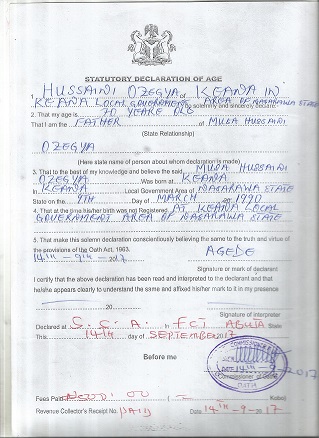 STATUTORY DECLARATION OF AGE
1. HUSSAINI OZEGYA of KEANA IN
KEANA LOCAL GOVERNMENT AREA OF NASARAWA STATE
do solemnly and sincerely declare
2. That my age is 70 YEARS OLD
That I am the FATHER of MUSA HUSSAINI
(State Relationship)
OZEGYA
(Here state name of person about whom declaration is made)
3. That to the best of my knowledge and believe the said MUSA HUSSAINI
OZEGYA Was born at KEANA
In KEANA Local Government Area of NASARAWA STATE
State on the 9TH Day of MARCH 1990
4. That at the time his/her birth was not Registered AT KEANA LOCAL
GOVERNMENT AREA OF NASARAWA STATE
5. That make this solemn declaration conscientiously believing the same to the truth and virtue of
the provisions of the Oath Act, 1963. AGEDE
14TH - 9TH - 2017
Signature or mark of declarant
I certify that the above declaration has been read and interpreted to the declarant and that
he/she appears clearly to understand the same and affixed his/her mark to it in my presence
Signature of interpreter
Declared at S. C. A. In FCT ABUJA State
This 14TH day of SEPTEMBER 2017
Before me
OATH
Fees Paid Kobo)
Revenue Collector's Receipt No. PAID Date 14TH-9-2017